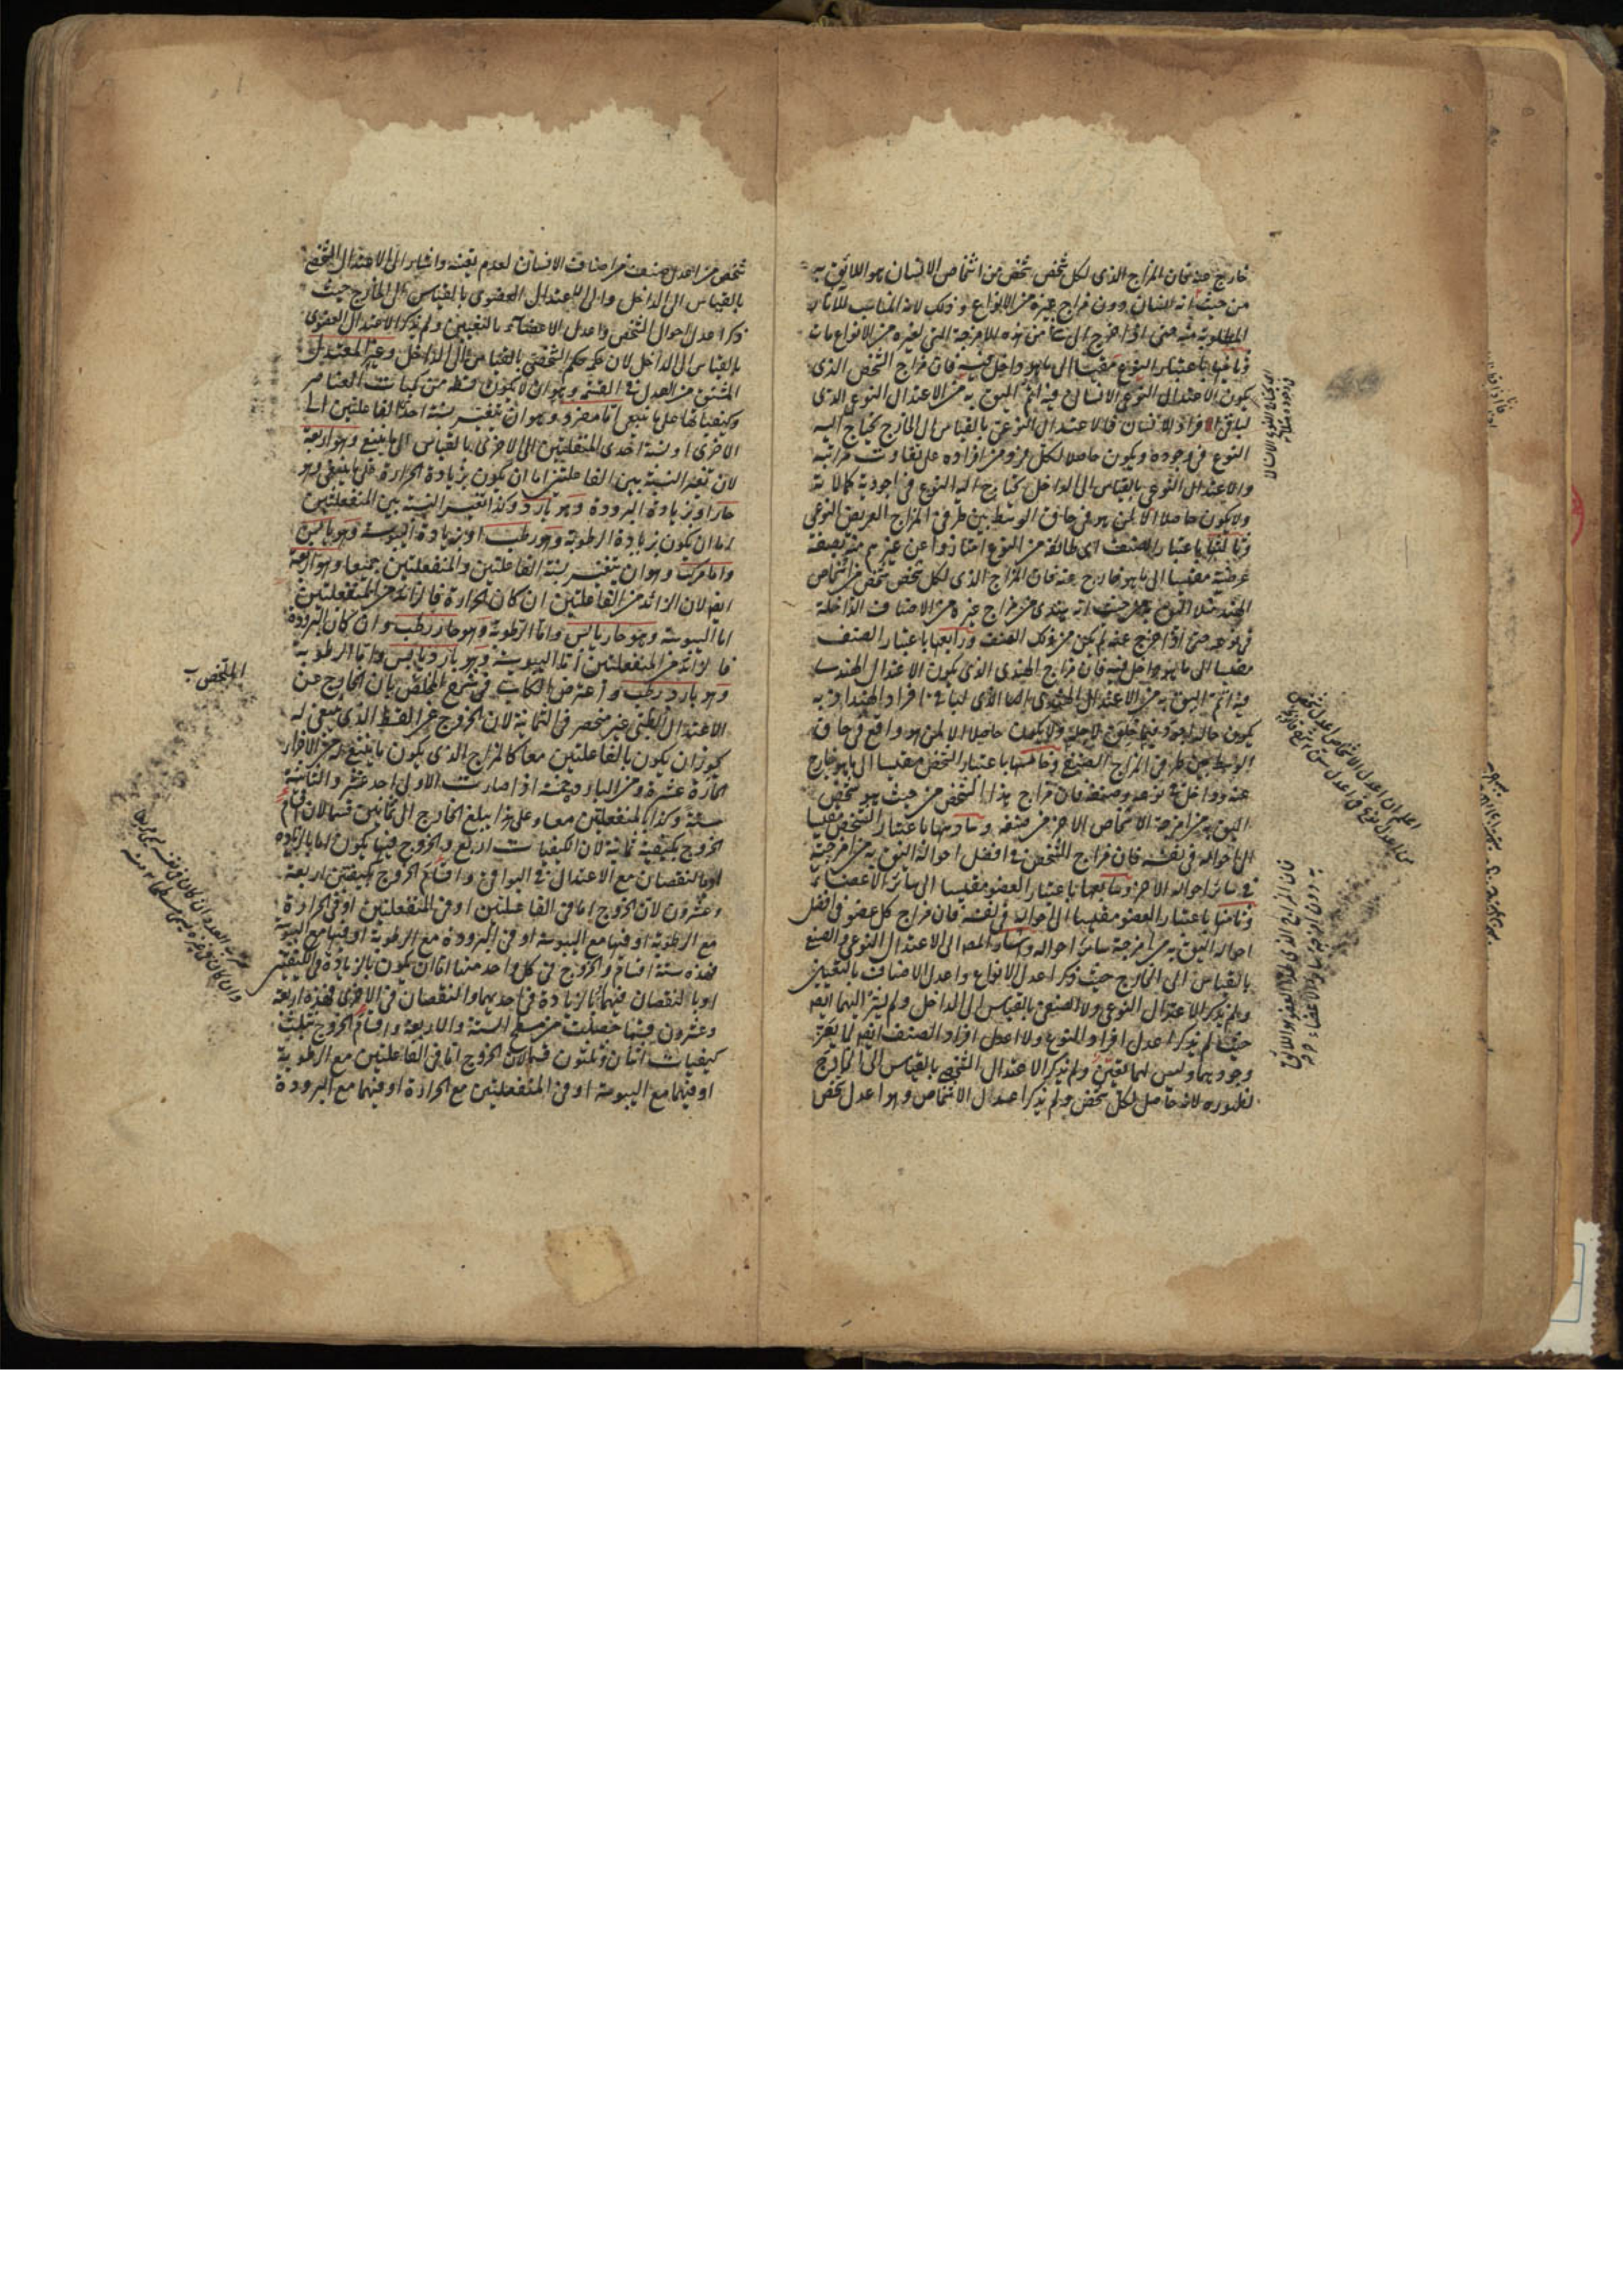 خارج عنه فان المزاج الذى لكل شخص شخص من اشخاص الانسان هو اللائق به
من حيث انه انسان دون مزاج غيره من الانواع و ذلك لانه المناسب للآثار
المطلوبة منه حتى اذا خرج الى شئ من هذه الامزجة التى لغيره من الانواع مات
وثانيها باعتبار النوع مقيسا الى ما هو داخل فيه فان مزاج الشخص الذى
يكون الاعتدال النوعى الانسانى فيه اتم اليق به من الاعتدال النوعى الذى
لباقى افراد الانسان فالاعتدال النوعى بالقياس الى الخارج يحتاج اليه
النوع فى وجوده ويكون حاصلا لكل فرد من افراده على تفاوت مراتبه
والاعتدال النوعى بالقياس الى الداخل يحتاج اليه النوع فى اجودية كمالاته
ولا يكون حاصلا الا لمن هو فى حاق الوسط بين طرفى المزاج العريض النوعى
وثالثها باعتبار الصنف اى طائفة من النوع امتازوا عن غيرهم منه بصفة
عرضية مقيسا الى ما هو خارج عنه فان المزاج الذى لكل شخص شخص من اشخاص
الهند مثلا اليق به من حيث انه هندى من مزاج غيره من الاصناف الداخلة
فى نوعه حتى اذا خرج عنه لم يكن من ذلك الصنف ورابعها باعتبار الصنف
مقيسا الى ما هو داخل فيه فان مزاج الهندى الذى يكون الاعتدال الهندى
فيه اتم اليق به من الاعتدال الهندى الذى لباقى افراد الهند اذ به
يكون حاله اجود فيما خلق لاجله ولا يكون حاصلا الا لمن هو واقع فى حاق
الوسط بين طرفى المزاج الصنفى وخامسها باعتبار الشخص مقيسا الى ما هو خارج
عنه وداخل فى نوعه وصنفه فان مزاج هذا الشخص من حيث هو شخص
اليق به من امزجة الاشخاص الاخر من صنفه وسادسها باعتبار الشخص مقيسا
الى احواله فى نفسه فان مزاج الشخص فى افضل احواله اليق به من امزجته
فى سائر احواله الاخر وسابعها باعتبار العضو مقيسا الى سائر الاعضاء
وثامنها باعتبار العضو مقيسا الى احواله فى نفسه فان مزاج كل عضو فى افضل
احواله اليق به من امزجة سائر احواله واشار المص الى الاعتدال النوعى والصنفى
بالقياس الى الخارج حيث ذكر اعدل الانواع واعدل الاصناف بالتعيين
ولم يذكر الاعتدال النوعى ولا الصنفى بالقياس الى الداخل ولم يشر اليهما ايضا
حيث لم يذكر اعدل افراد النوع ولا اعدل افراد الصنف ايضا
وجودهما وليس لهما تعين ولم يذكر الاعتدال الشخصى بالقياس الى الخارج
لظهوره لانه حاصل لكل شخص ولم يذكر اعدل الاشخاص وهو اعدل شخص
شخص من اعدل صنف من اصناف الانسان لعدم تعينه واشار الى الاعتدال الشخصى
بالقياس الى الداخل والى الاعتدال العضوى بالقياس الى الخارج حيث
ذكر اعدل احوال الشخص واعدل الاعضاء بالتعيين ولم يذكر الاعتدال العضوى
بالقياس الى الداخل لان حكمه حكم الشخصى بالقياس الى الداخل وغير المعتدل
المشتق من العدل فى القسمة وهو ان لا يكون قسط من كميات العناصر
وكيفياتها على ما ينبغى اما مفرد وهو ان يتغير نسبة احدى الفاعلتين الى
الاخرى او نسبة احدى المنفعلتين الى الاخرى بالقياس الى ما ينبغى وهو اربعة
لان تغير النسبة بين الفاعلتين اما ان يكون بزيادة الحرارة على ما ينبغى وهو
حار او بزيادة البرودة وهو بارد وكذا تغير النسبة بين المنفعلتين
اما ان يكون بزيادة الرطوبة وهو رطب او بزيادة اليبوسة وهو يابس
واما مركب وهو ان يتغير نسبة الفاعلتين والمنفعلتين جميعا وهو اربعة
ايضا لان الزائد من الفاعلتين ان كان الحرارة فالزائد من المنفعلتين
اما اليبوسة وهو حار يابس واما الرطوبة وهو حار رطب وان كان البرودة
فالزائد من المنفعلتين اما اليبوسة وهو بارد يابس واما الرطوبة
وهو بارد رطب واعترض الكاتبى فى شرح الملخص بان الخارج عن
الاعتدال الطبى غير منحصر فى الثمانية لان الخروج عن القسط الذى ينبغى له
يجوز ان يكون بالفاعلتين معا كالمزاج الذى يكون ما ينبغى له من الاجزاء
الحارة عشرة ومن الباردة خمسة اذا صارت الاولى احد عشر والثانية
ستة وكذا بالمنفعلتين معا وعلى هذا يبلغ الخارج الى ثمانين قسما لان اقسام
الخروج بكيفية ثمانية لان الكيفيات اربع والخروج فيها يكون اما بالزيادة
او بالنقصان مع الاعتدال فى البواقى واقسام الخروج بكيفيتين اربعة
وعشرون لان الخروج اما فى الفاعلتين او فى المنفعلتين او فى الحرارة
مع الرطوبة او فيها مع اليبوسة او فى البرودة مع الرطوبة او فيها مع اليبوسة
فهذه ستة اقسام والخروج فى كل واحد منها اما ان يكون بالزيادة فى الكيفيتين
او بالنقصان فيهما او بالزيادة فى احديهما والنقصان فى الاخرى فهذه اربعة
وعشرون قسما حصلت من سطح الستة والاربعة واقسام الخروج بثلث
كيفيات اثنان وثلثون قسما لان الخروج اما فى الفاعلتين مع الرطوبة
او فيهما مع اليبوسة او فى المنفعلتين مع الحرارة او فيهما مع البرودة